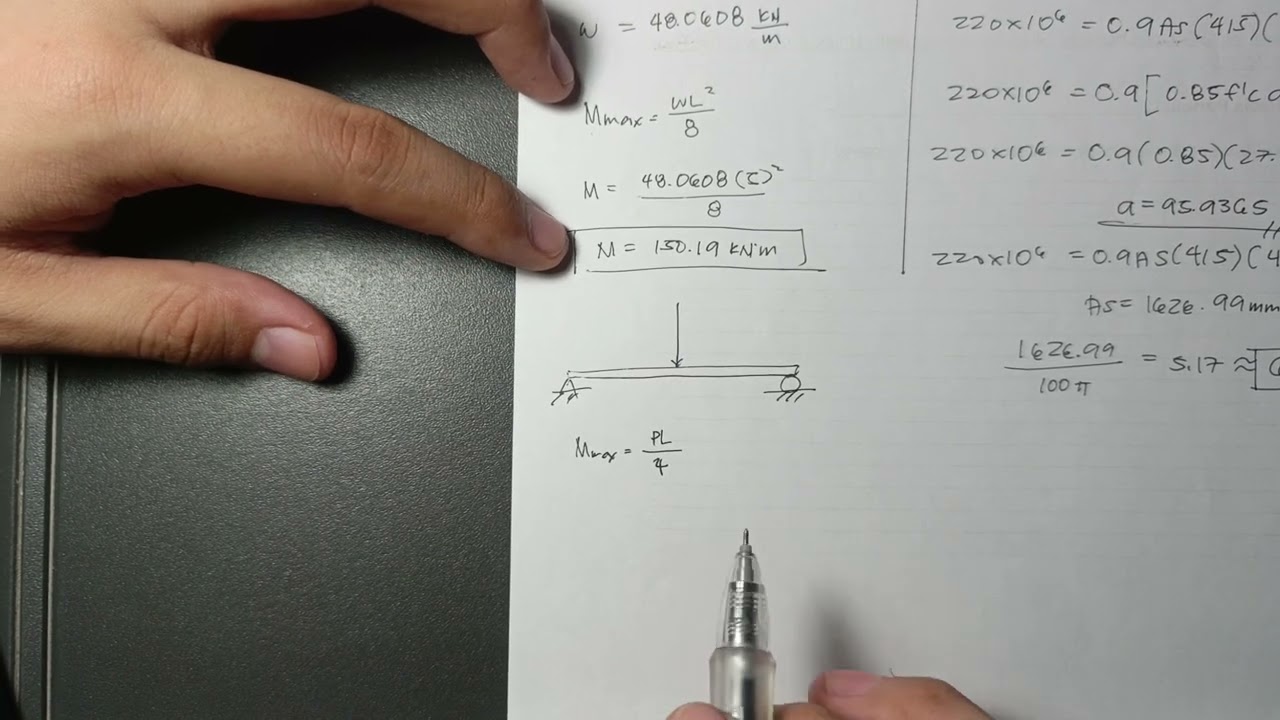 w = 48.0608 KN/m
Mmax = WL²/8
M = 48.0608 (5)²/8
M = 150.19 KN·m
Mmax = PL/4
220x10⁶ = 0.9As(415)(
220x10⁶ = 0.9[0.85f'c
220x10⁶ = 0.9(0.85)(27.
a = 95.9365
220x10⁶ = 0.9AS(415)(4
As = 1626.99mm
1626.99/100π = 5.17 ≈